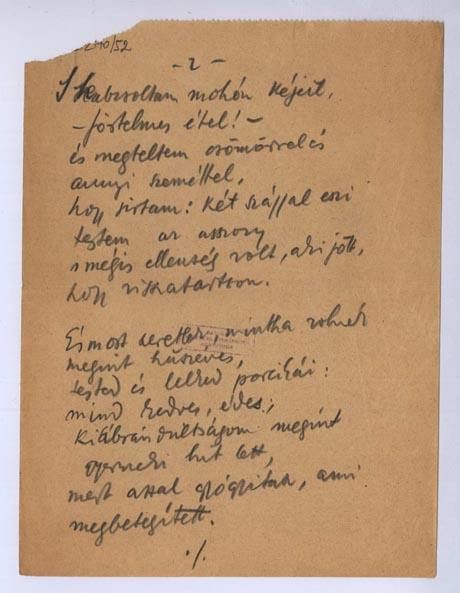 – 2 –
S habzsoltam mohón kéjeit,
– förtelmes étel! –
és megteltem csömörrel és
annyi szeméttel,
hogy sirtam: Két szájjal eszi
testem az asszony
s mégis ellenség volt, aki jött,
hogy visszatartson.
És most szeretlek, mintha volnék
megint húszéves,
tested és lelked porcikái:
mind kedves, édes;
kiábrándultságom megint
gyermeki hit lett,
mert azzal gyógyítasz, ami
megbetegített.
./.